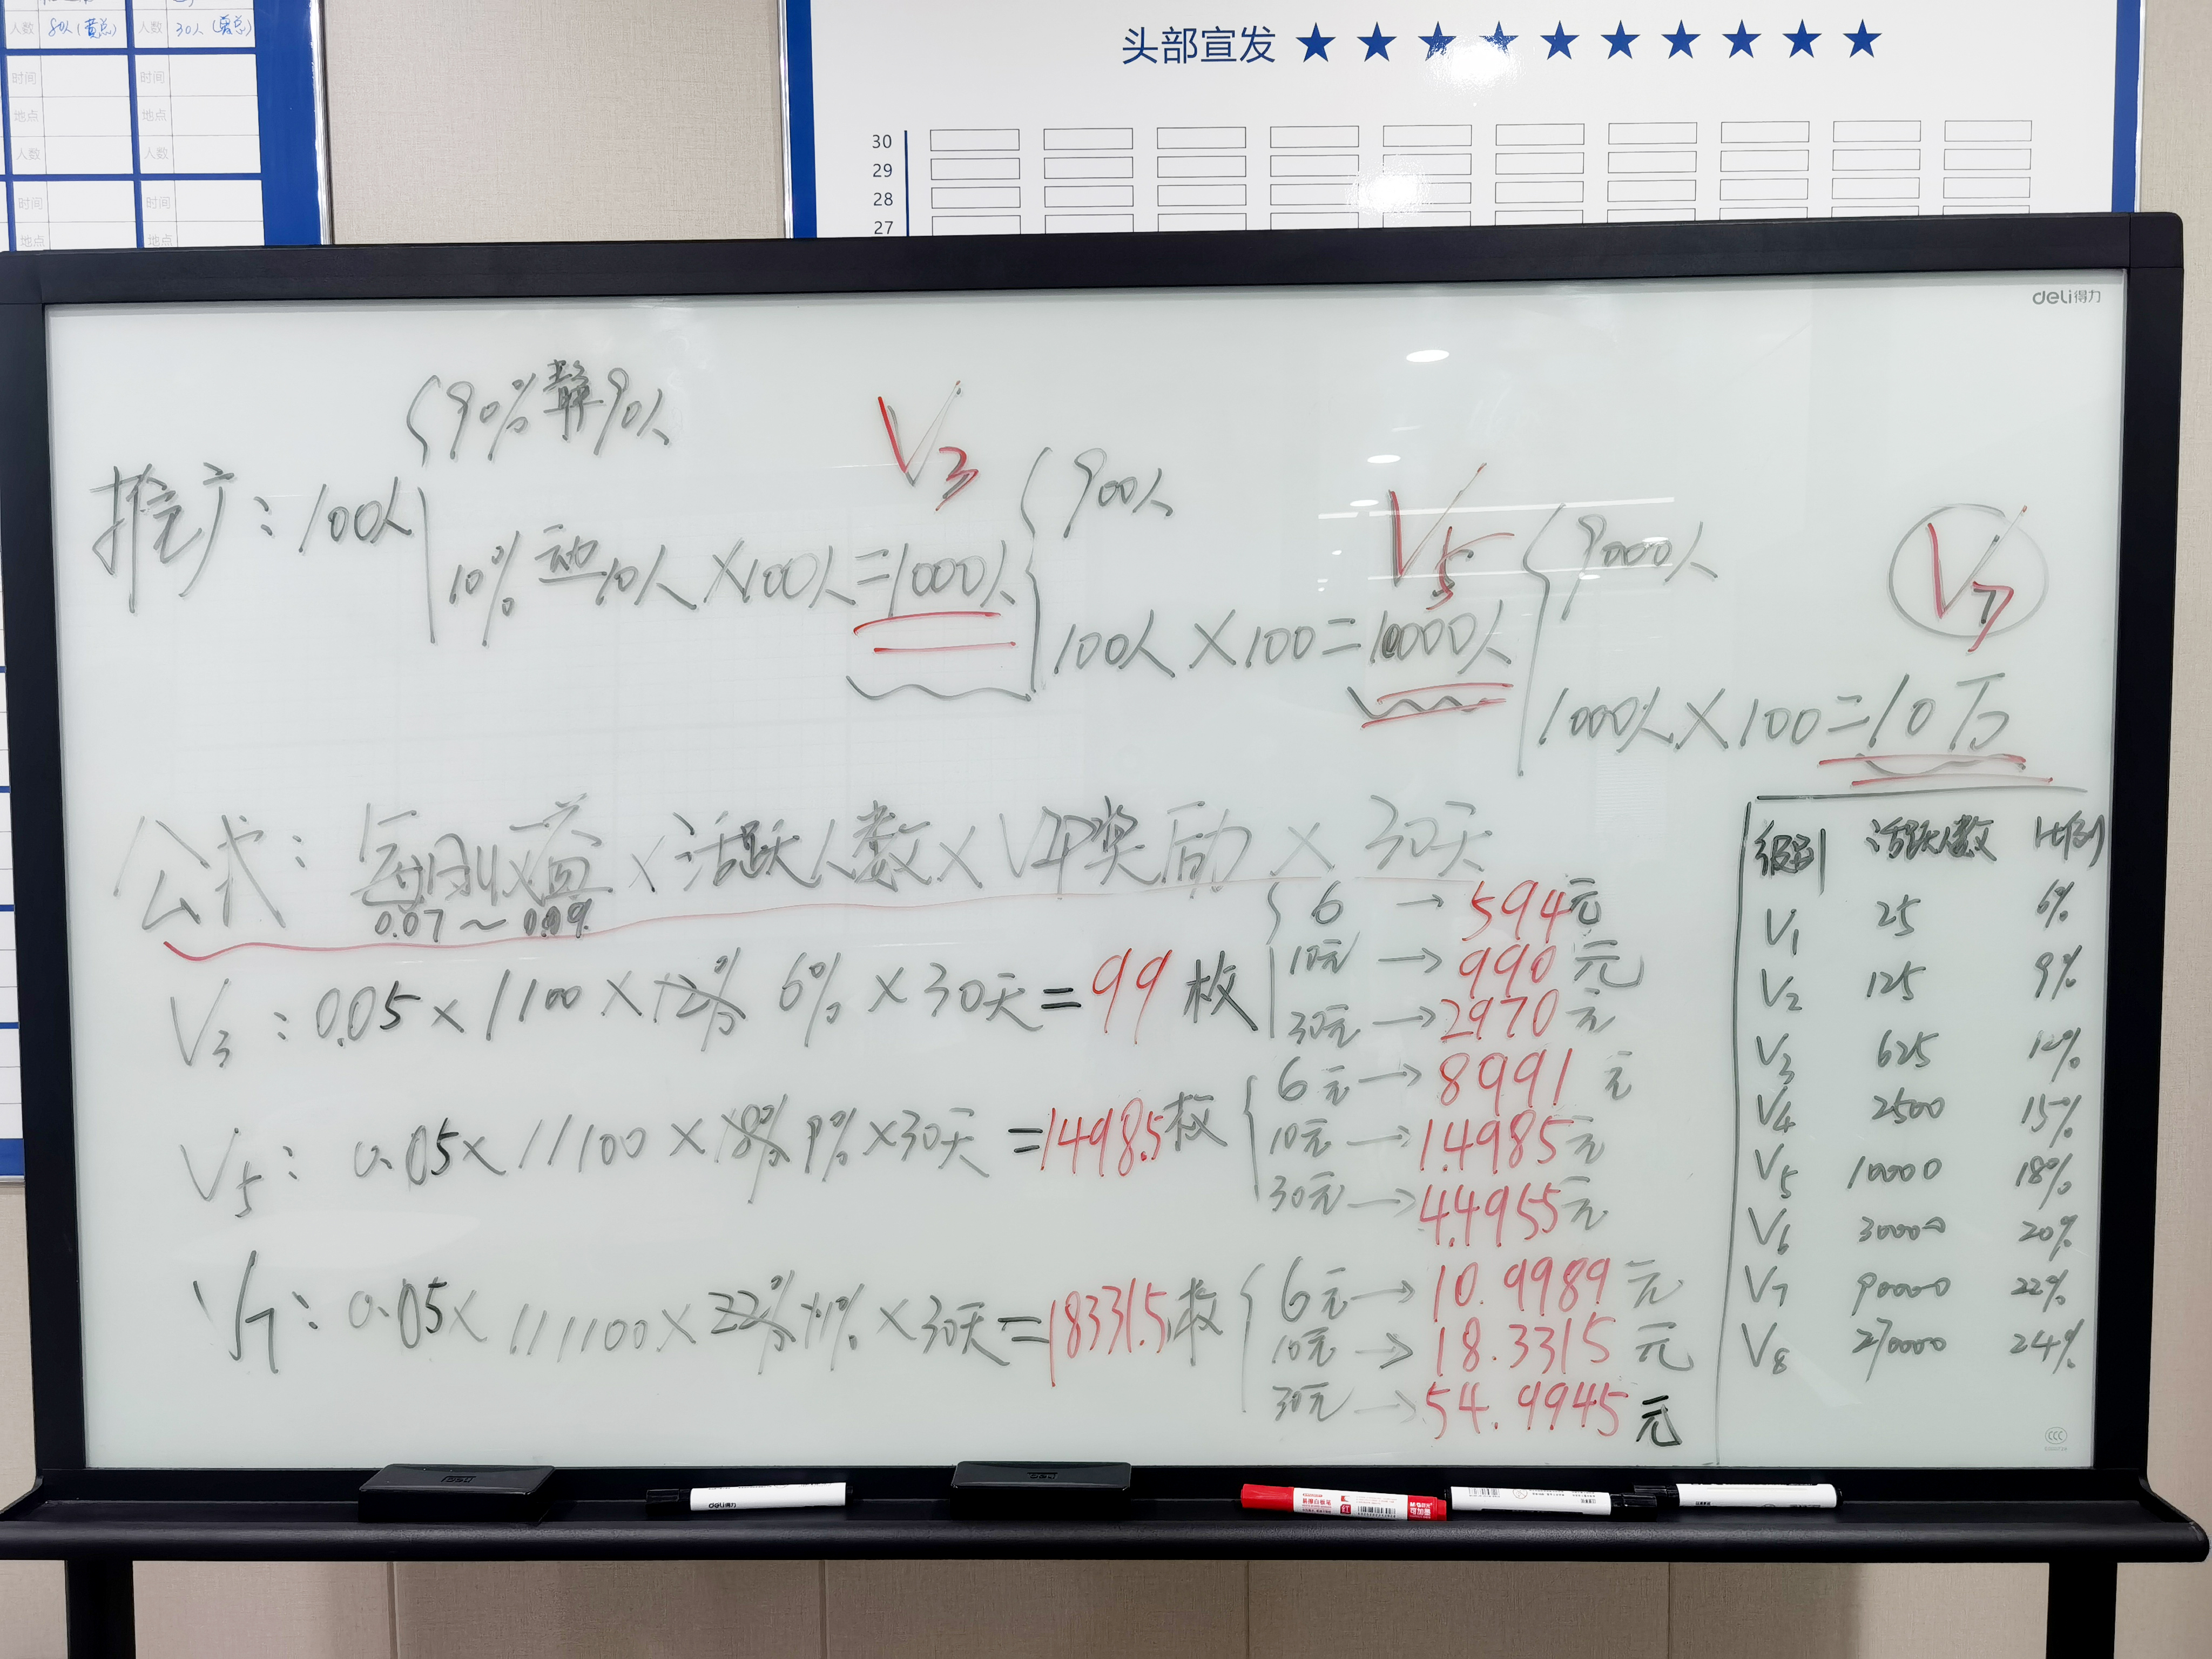 人数 80人(黄总) 人数 30人( 总)
时间 时间
地点 地点
人数 人数
时间 时间
地点 地点
头部宣发 ★ ★ ★ ★ ★ ★ ★ ★ ★ ★
30
29
28
27
deli得力
90% 静 90人
推广: 100人
10% 动 10人 × 100人 = 1000人
V3
900人
100人 × 100 = 10000人
V5
9000人
1000人 × 100 = 10万
V7
公式: 每日收益 × 活跃人数 × VIP奖励 × 30天
0.07 ~ 0.09%
V3: 0.05 × 1100 × 12% 6% × 30天 = 99 枚
6 → 594元
10元 → 990元
30元 → 2970元
V5: 0.05 × 11100 × 18% 9% × 30天 = 1498.5枚
6元 → 8991元
10元 → 1.4985元
30元 → 4.4955元
V7: 0.05 × 111100 × 22% 11% × 30天 = 18331.5枚
6元 → 10.9989元
10元 → 18.3315元
30元 → 54.9945元
级别 活跃人数 比例
V1 25 6%
V2 125 9%
V3 625 12%
V4 2500 15%
V5 10000 18%
V6 30000 20%
V7 90000 22%
V8 270000 24%
deli
deli得力
deli